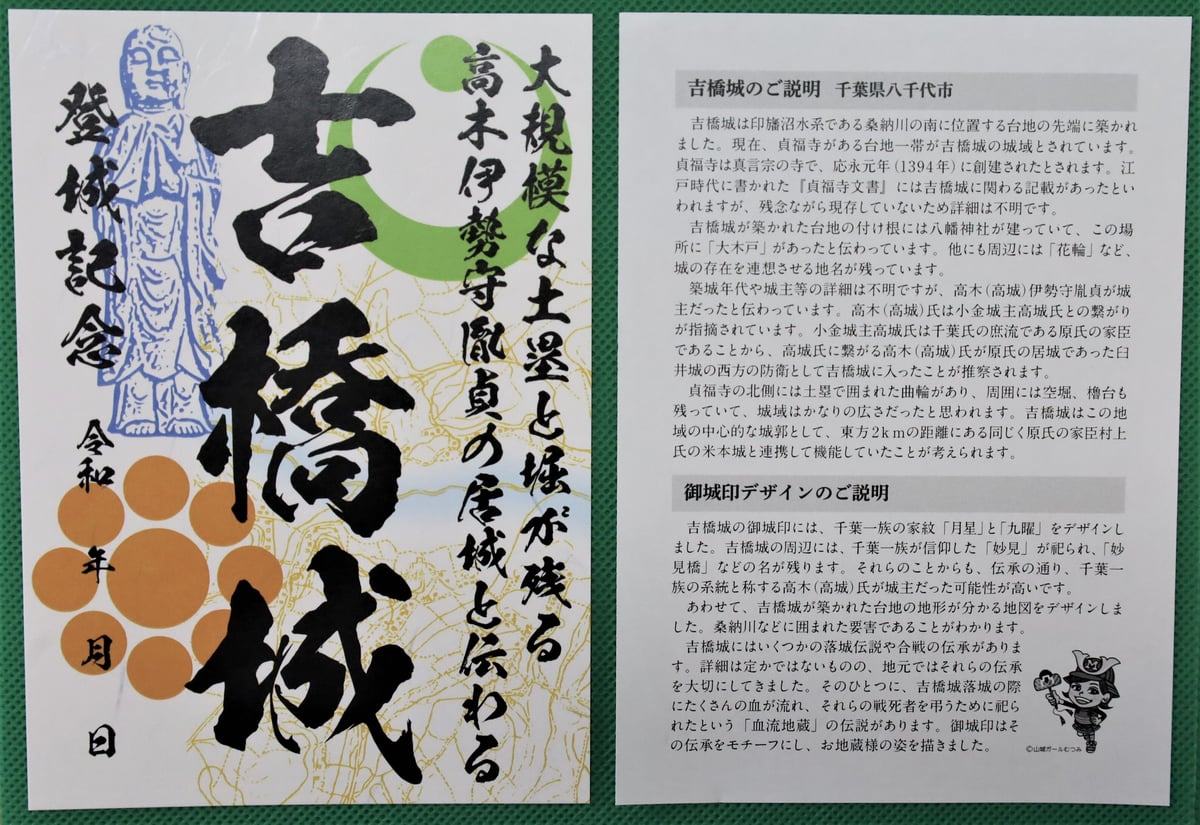 大規模な土塁と堀が残る
高木伊勢守胤貞の居城と伝わる
吉橋城
登城記念
令和 年 月 日
吉橋城のご説明 千葉県八千代市
吉橋城は印旛沼水系である桑納川の南に位置する台地の先端に築かれ
ました。現在、貞福寺がある台地一帯が吉橋城の城域とされています。
貞福寺は真言宗の寺で、応永元年(1394年)に創建されたとされます。江
戸時代に書かれた『貞福寺文書』には吉橋城に関わる記載があったとい
われますが、残念ながら現存していないため詳細は不明です。
吉橋城が築かれた台地の付け根には八幡神社が建っていて、この場
所に「大木戸」があったと伝わっています。他にも周辺には「花輪」など、
城の存在を連想させる地名が残っています。
築城年代や城主等の詳細は不明ですが、高木(高城)伊勢守胤貞が城
主だったと伝わっています。高木(高城)氏は小金城主高城氏との繋がり
が指摘されています。小金城主高城氏は千葉氏の庶流である原氏の家臣
であることから、高城氏に繋がる高木(高城)氏が原氏の居城であった臼
井城の西方の防衛として吉橋城に入ったことが推察されます。
貞福寺の北側には土塁で囲まれた曲輪があり、周囲には空堀、櫓台も
残っていて、城域はかなりの広さだったと思われます。吉橋城はこの地
域の中心的な城郭として、東方2kmの距離にある同じく原氏の家臣村上
氏の米本城と連携して機能していたことが考えられます。
御城印デザインのご説明
吉橋城の御城印には、千葉一族の家紋「月星」と「九曜」をデザインし
ました。吉橋城の周辺には、千葉一族が信仰した「妙見」が祀られ、「妙
見橋」などの名が残ります。それらのことからも、伝承の通り、千葉一
族の系統と称する高木(高城)氏が城主だった可能性が高いです。
あわせて、吉橋城が築かれた台地の地形が分かる地図をデザインしま
した。桑納川などに囲まれた要害であることがわかります。
吉橋城にはいくつかの落城伝説や合戦の伝承がありま
す。詳細は定かではないものの、地元ではそれらの伝承
を大切にしてきました。そのひとつに、吉橋城落城の際
にたくさんの血が流れ、それらの戦死者を弔うために祀ら
れたという「血流地蔵」の伝説があります。御城印はそ
の伝承をモチーフにし、お地蔵様の姿を描きました。
M
©山城ガールむつみ